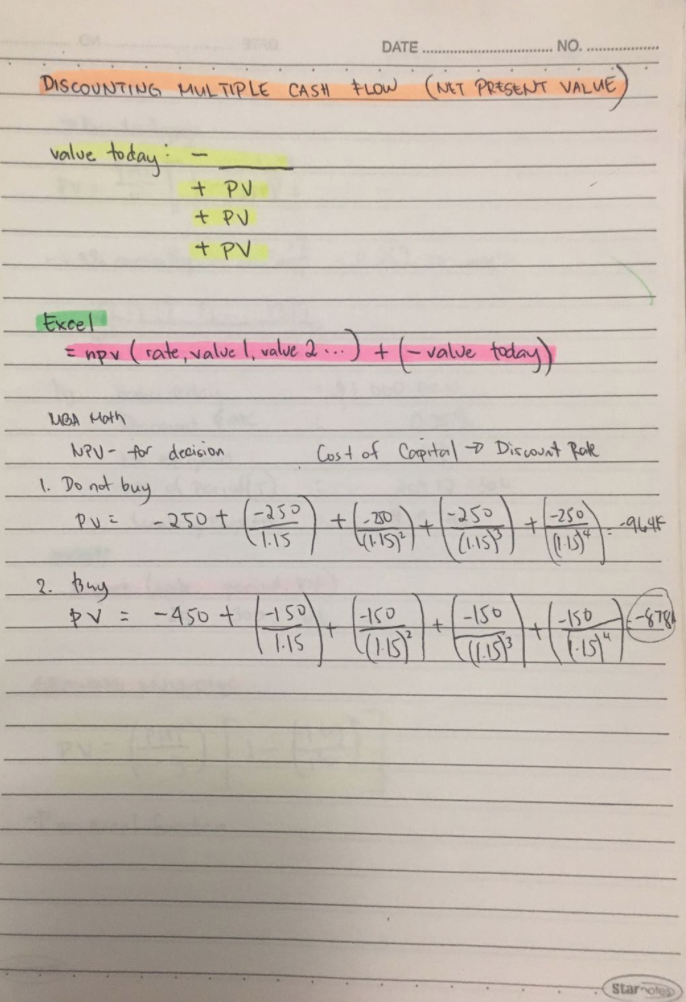 DATE ........................ NO. ..............
DISCOUNTING MULTIPLE CASH FLOW (NET PRESENT VALUE)
value today: - ______
+ PV
+ PV
+ PV
Excel
= npv (rate, value 1, value 2 ...) + (- value today)
MBA Math
NPV - for decision Cost of Capital → Discount Rate
1. Do not buy
PV = -250 + (-250/1.15) + (-250/(1.15)²) + (-250/(1.15)³) + (-250/(1.15)⁴) = -964K
2. Buy
PV = -450 + (-150/1.15) + (-150/(1.15)²) + (-150/(1.15)³) + (-150/(1.15)⁴) = -878K
Starnotes